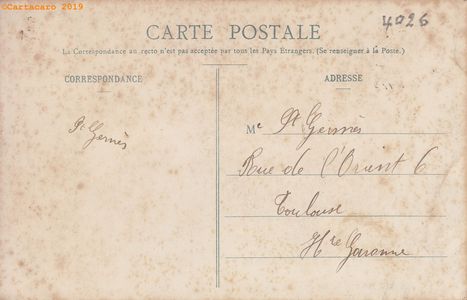 ©Cartacaro 2019
4026
CARTE POSTALE
La Correspondance au recto n'est pas acceptée par tous les Pays Etrangers. (Se renseigner à la Poste.)
CORRESPONDANCE
ADRESSE
Pt Germès
Me Pt Germès
Rue de l'Orient 6
Toulouse
Hte Garonne